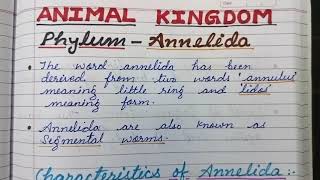 ANIMAL KINGDOM
Phylum - Annelida
The word annelida has been
derived from two words 'annulus'
meaning little ring and 'eidos'
meaning form.
Annelida are also known as
Segmental worms.
Characteristics of Annelida :-